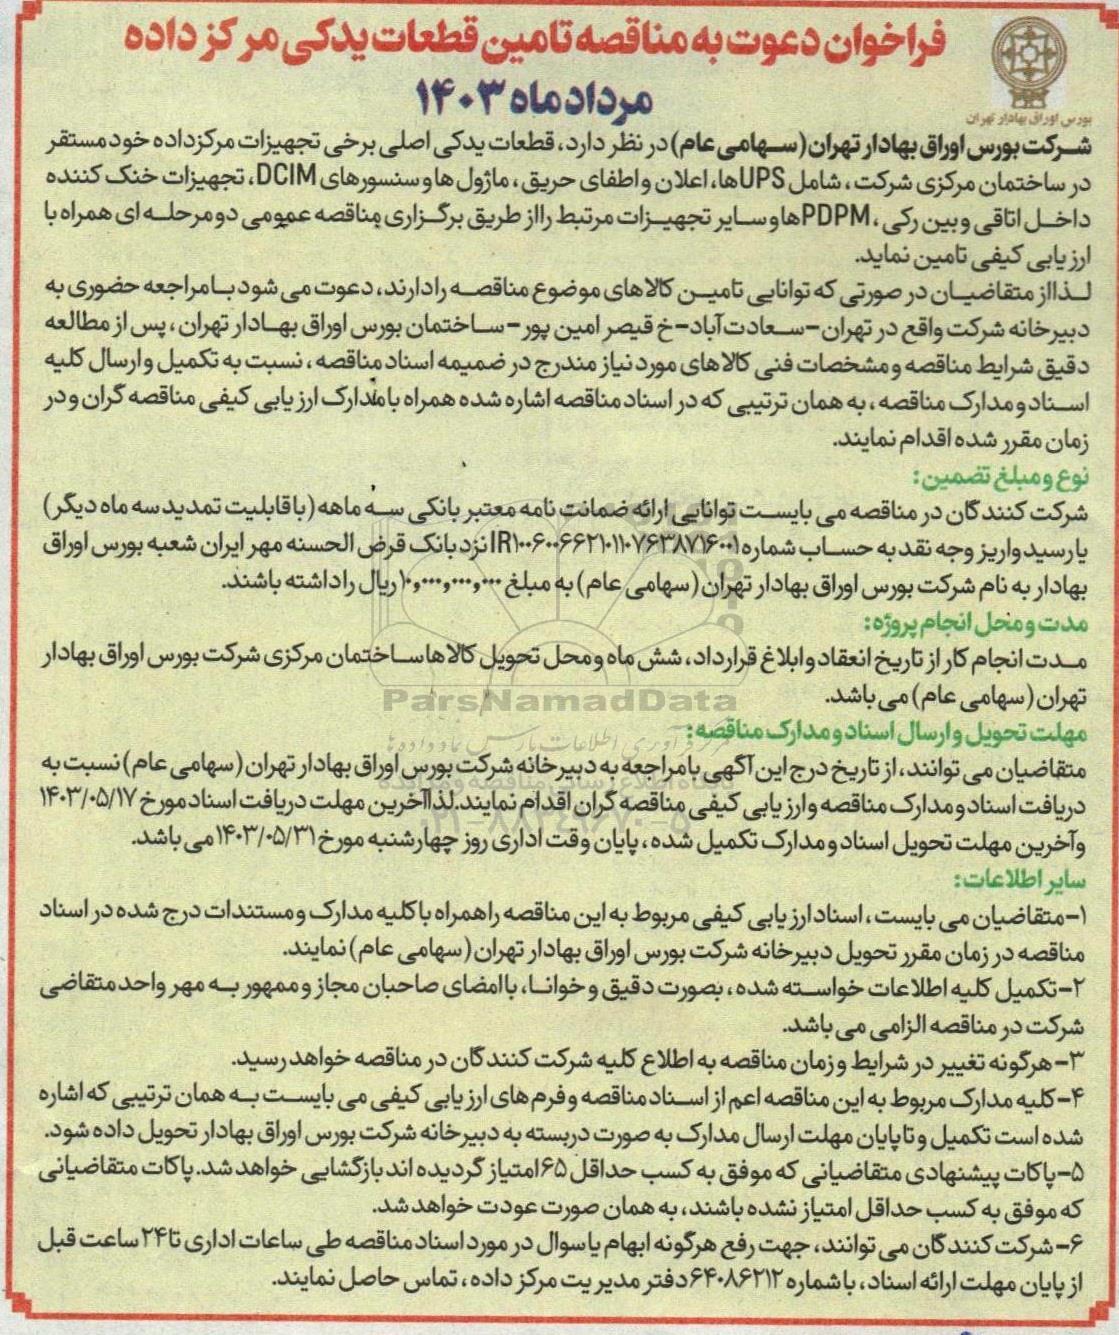 فراخوان دعوت به مناقصه تامین قطعات یدکی مرکز داده
مرداد ماه ۱۴۰۳
بورس اوراق بهادار تهران
شرکت بورس اوراق بهادار تهران (سهامی عام) در نظر دارد، قطعات یدکی اصلی برخی تجهیزات مرکز داده خود مستقر
در ساختمان مرکزی شرکت، شامل UPSها، اعلان و اطفای حریق، ماژول ها و سنسورهای DCIM، تجهیزات خنک کننده
داخل اتاقی و بین رکی، PDPMها و سایر تجهیزات مرتبط را از طریق برگزاری مناقصه عمومی دو مرحله ای همراه با
ارزیابی کیفی تامین نماید.
لذا از متقاضیان در صورتی که توانایی تامین کالاهای موضوع مناقصه را دارند، دعوت می شود با مراجعه حضوری به
دبیرخانه شرکت واقع در تهران-سعادت آباد-خ قیصر امین پور-ساختمان بورس اوراق بهادار تهران، پس از مطالعه
دقیق شرایط مناقصه و مشخصات فنی کالاهای مورد نیاز مندرج در ضمیمه اسناد مناقصه، نسبت به تکمیل و ارسال کلیه
اسناد و مدارک مناقصه، به همان ترتیبی که در اسناد مناقصه اشاره شده همراه با مدارک ارزیابی کیفی مناقصه گران و در
زمان مقرر شده اقدام نمایند.
نوع و مبلغ تضمین:
شرکت کنندگان در مناقصه می بایست توانایی ارائه ضمانت نامه معتبر بانکی سه ماهه (با قابلیت تمدید سه ماه دیگر)
یا رسید واریز وجه نقد به حساب شماره نزد بانک قرض الحسنه مهر ایران شعبه بورس اوراق
بهادار به نام شرکت بورس اوراق بهادار تهران (سهامی عام) به مبلغ ۱۰,۰۰۰,۰۰۰,۰۰۰ ریال را داشته باشند.
مدت و محل انجام پروژه:
مدت انجام کار از تاریخ انعقاد و ابلاغ قرارداد، شش ماه و محل تحویل کالاها ساختمان مرکزی شرکت بورس اوراق بهادار
تهران (سهامی عام) می باشد.
ParsNamadData
مهلت تحویل و ارسال اسناد و مدارک مناقصه:
مرکز فرآوری اطلاعات پارس نماد داده ها
متقاضیان می توانند، از تاریخ درج این آگهی با مراجعه به دبیرخانه شرکت بورس اوراق بهادار تهران (سهامی عام) نسبت به
دریافت اسناد و مدارک مناقصه و ارزیابی کیفی مناقصه گران اقدام نمایند. لذا آخرین مهلت دریافت اسناد مورخ ۱۴۰۳/۰۵/۱۷
و آخرین مهلت تحویل اسناد و مدارک تکمیل شده، پایان وقت اداری روز چهارشنبه مورخ ۱۴۰۳/۰۵/۳۱ می باشد.
سایر اطلاعات:
۱-متقاضیان می بایست، اسناد ارزیابی کیفی مربوط به این مناقصه را همراه با کلیه مدارک و مستندات درج شده در اسناد
مناقصه در زمان مقرر تحویل دبیرخانه شرکت بورس اوراق بهادار تهران (سهامی عام) نمایند.
۲-تکمیل کلیه اطلاعات خواسته شده، بصورت دقیق و خوانا، با امضای صاحبان مجاز و ممهور به مهر واحد متقاضی
شرکت در مناقصه الزامی می باشد.
۳-هرگونه تغییر در شرایط و زمان مناقصه به اطلاع کلیه شرکت کنندگان در مناقصه خواهد رسید.
۴-کلیه مدارک مربوط به این مناقصه اعم از اسناد مناقصه و فرم های ارزیابی کیفی می بایست به همان ترتیبی که اشاره
شده است تکمیل و تا پایان مهلت ارسال مدارک به صورت دربسته به دبیرخانه شرکت بورس اوراق بهادار تحویل داده شود.
۵-پاکات پیشنهادی متقاضیانی که موفق به کسب حداقل ۶۵ امتیاز گردیده اند بازگشایی خواهد شد. پاکات متقاضیانی
که موفق به کسب حداقل امتیاز نشده باشند، به همان صورت عودت خواهد شد.
۶-شرکت کنندگان می توانند، جهت رفع هرگونه ابهام یا سوال در مورد اسناد مناقصه طی ساعات اداری تا ۲۴ ساعت قبل
از پایان مهلت ارائه اسناد، با شماره ۶۴۰۸۶۲۱۲ دفتر مدیریت مرکز داده، تماس حاصل نمایند.